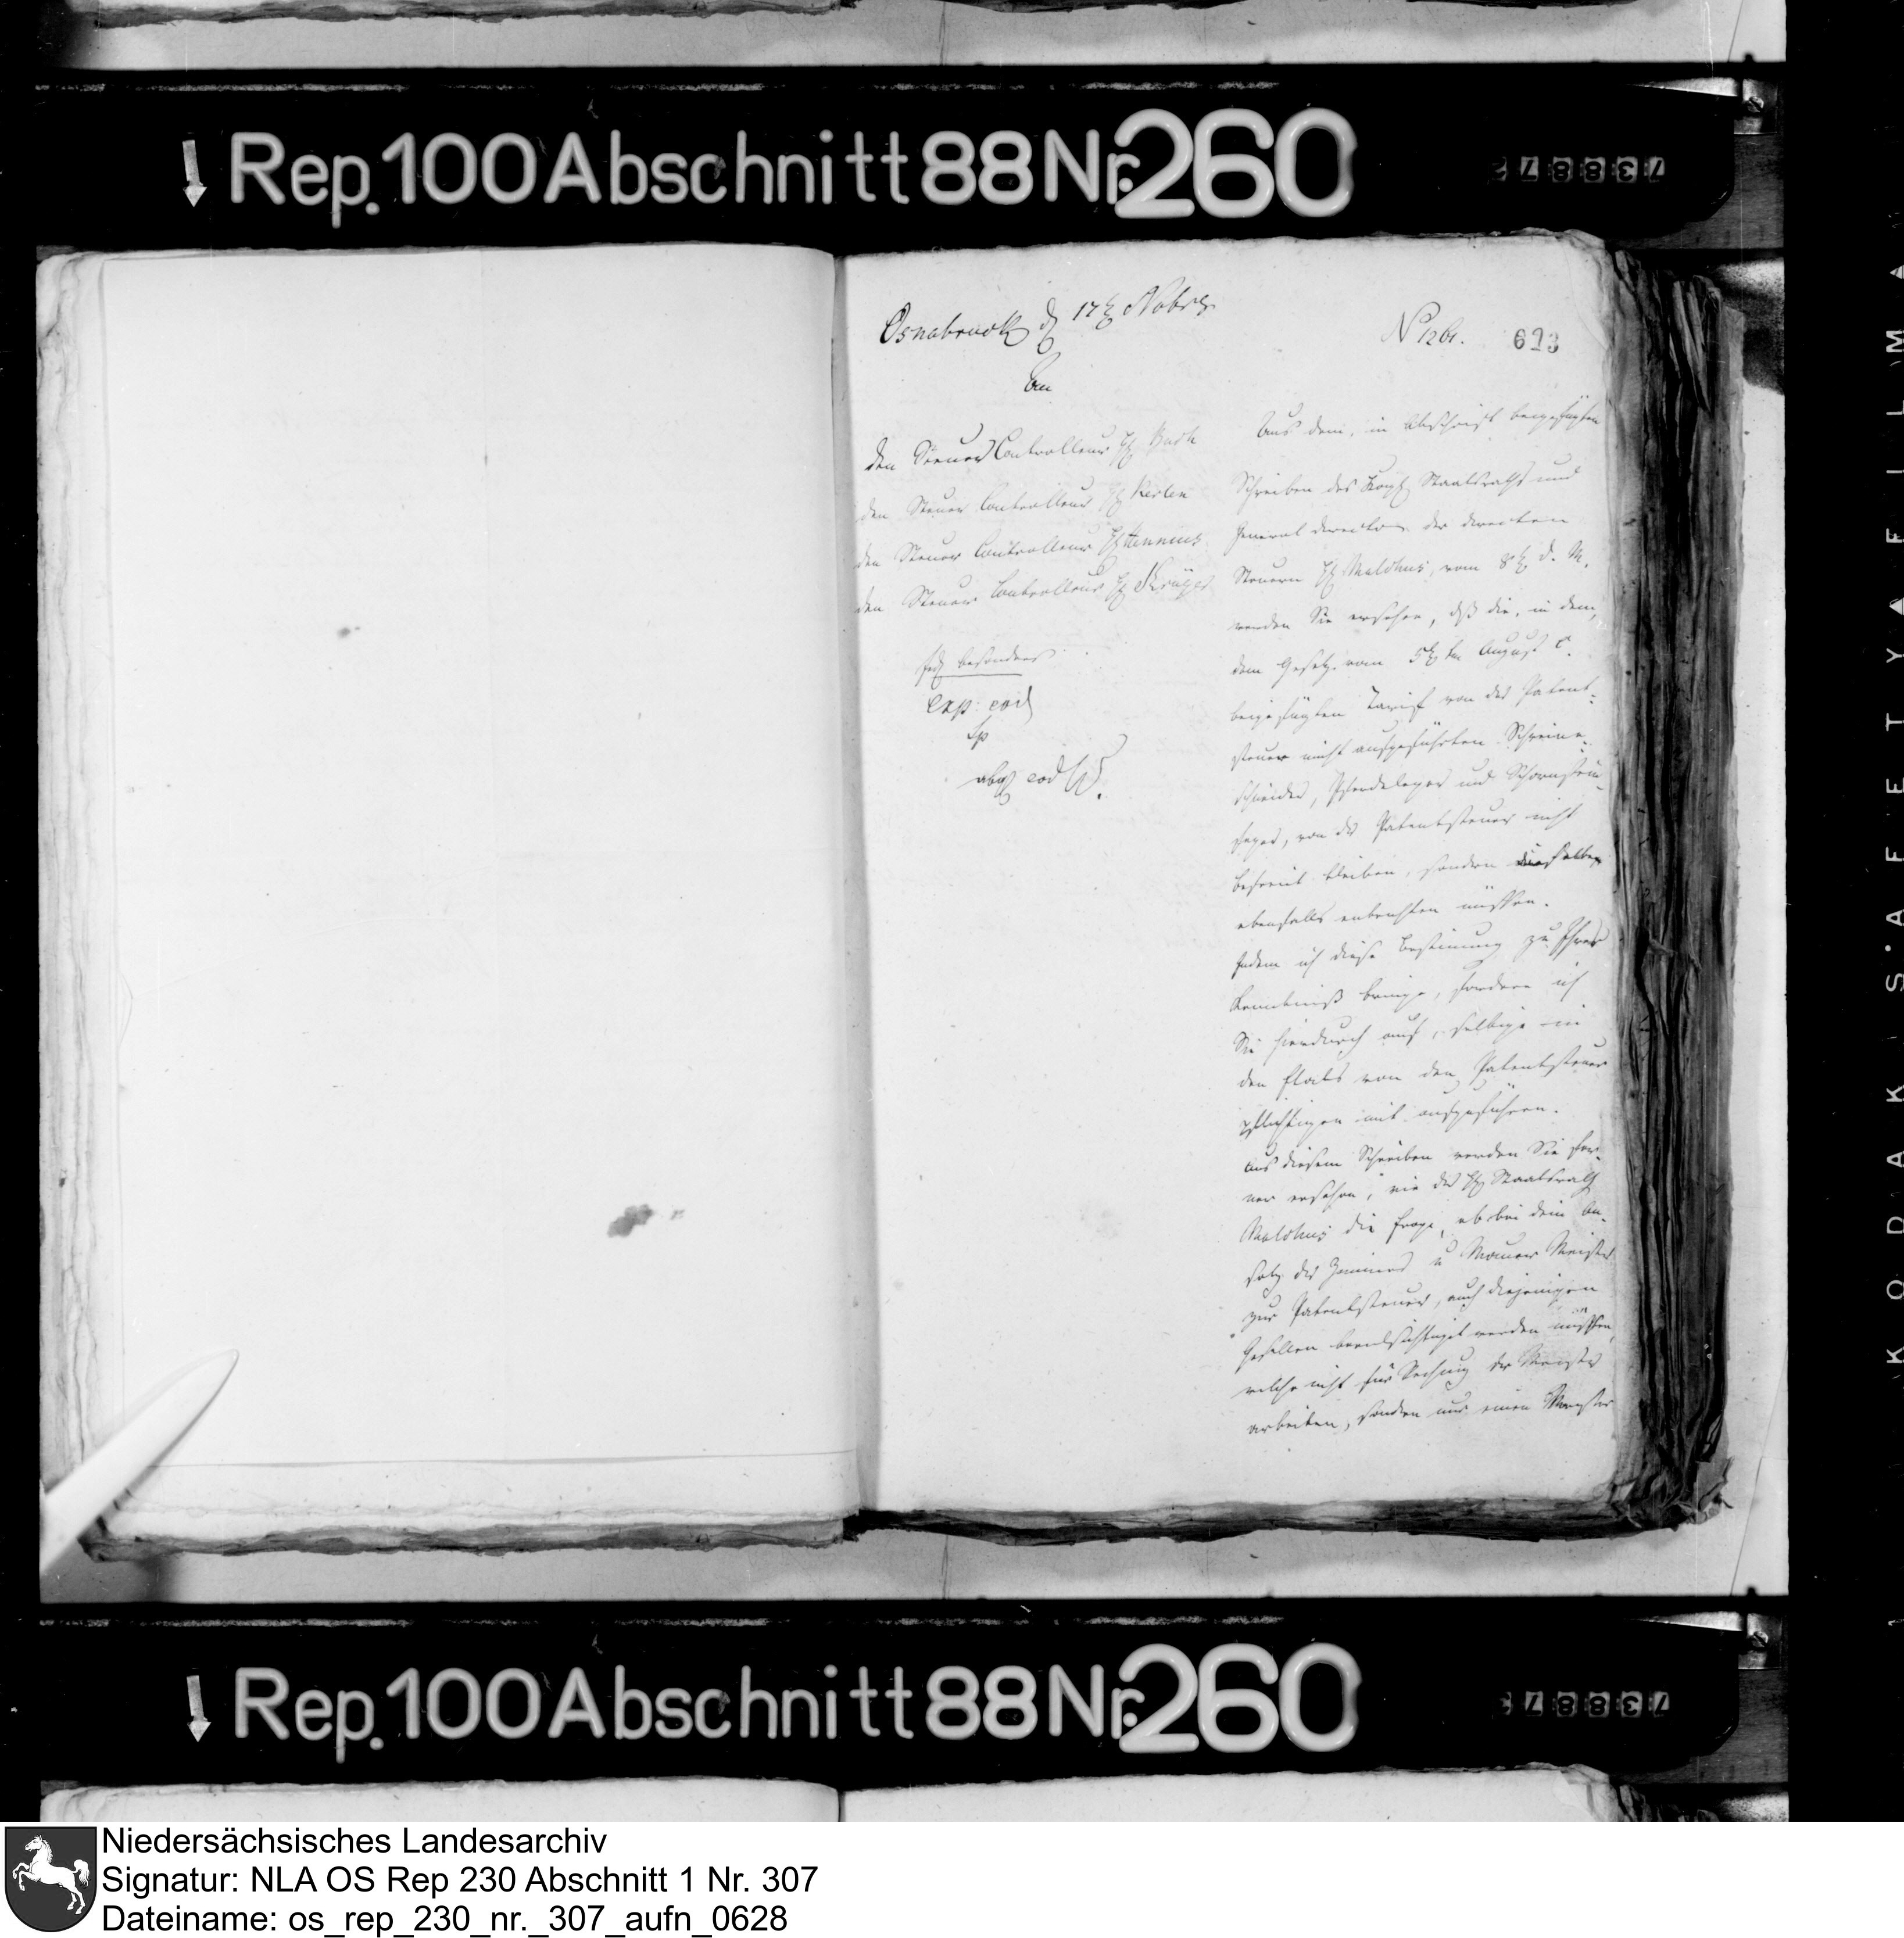 Rep. 100 Abschnitt 88 Nr. 260
738872
Osnabruck d 17t Nobr
N 1261. 623
An
den Steuer Controlleur H Barth
den Steuer Controlleur H Kerten
den Steuer Controlleur H Hennies
den Steuer Controlleur H Krüger
jed besonders
exp. eod
abg eod
Aus dem, in Abschrift beigefügten
Schreiben des Königl Staatsraths und
General directors der directen
Steuern H Malchus, vom 8t d. M.
werden Sie ersehen, daß die, in dem,
dem Gesetz vom 5ten August c.
beigefügten Tarif von der Patent-
steuer nicht aufgeführten Schweine-
schneider, Pferdeleger und Schornstein-
feger, von der Patentsteuer nicht
befreit bleiben, sondern dieselben
ebenfalls entrichten müssen.
Indem ich diese Bestimung zu Ihrer
Kenntniß bringe, fordere ich
Sie hierdurch auf, selbige in
den Etats von den Patentsteuer
pflichtigen mit aufzuführen.
Aus diesem Schreiben werden Sie fer-
ner ersehen, wie der H Staatsrath
Malchus die Frage, ob bei dem An-
satz der Zimmer u Mauer Meister
zur Patentsteuer, auch diejenigen
Gesellen berücksichtiget werden müssen,
welche nicht für Rechnung der Meister
arbeiten, sondern nur einen Meister
Rep. 100 Abschnitt 88 Nr. 260
738873
KODAK SAFETY FILM
Niedersächsisches Landesarchiv
Signatur: NLA OS Rep 230 Abschnitt 1 Nr. 307
Dateiname: os_rep_230_nr._307_aufn_0628